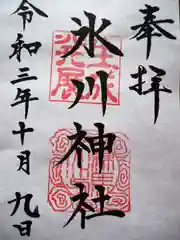 奉拝
氷川神社
令和三年十月九日